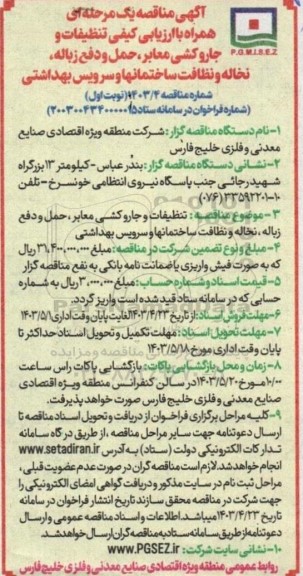 P.G.M.I.S.E.Z
آگهی مناقصه یک مرحله ای
همراه با ارزیابی کیفی تنظیفات و
جاروکشی معابر، حمل و دفع زباله،
نخاله و نظافت ساختمانها و سرویس بهداشتی
شماره مناقصه ۱۴۰۳/۴ (نوبت اول)
(شماره فراخوان در سامانه ستاد ۲۰۰۳۰۰۴۳۴۰۰۰۰۰۱۵)
۱- نام دستگاه مناقصه گزار: شرکت منطقه ویژه اقتصادی صنایع
معدنی و فلزی خلیج فارس
۲- نشانی دستگاه مناقصه گزار: بندرعباس - کیلومتر ۱۳ بزرگراه
شهید رجائی جنب پاسگاه نیروی انتظامی خونسرخ - تلفن
۱۰-۳۳۵۹۲۲۰۱ (۰۷۶)
۳- موضوع مناقصه: تنظیفات و جاروکشی معابر، حمل و دفع
زباله، نخاله و نظافت ساختمانها و سرویس بهداشتی
۴- مبلغ و نوع تضمین شرکت در مناقصه: مبلغ ۳۱,۴۰۰,۰۰۰,۰۰۰ ریال
که به صورت فیش واریزی یا ضمانت نامه بانکی به نفع مناقصه گزار
۵- قیمت اسناد و شماره حساب: مبلغ ۳,۰۰۰,۰۰۰ ریال به شماره
حسابی که در سامانه ستاد قید شده است واریز گردد.
۶- مهلت فروش اسناد: از تاریخ ۱۴۰۳/۴/۲۳ لغایت پایان وقت اداری ۱۴۰۳/۵/۱
۷- مهلت تحویل اسناد: مهلت تکمیل و تحویل اسناد حداکثر تا
پایان وقت اداری مورخ ۱۴۰۳/۵/۱۸
۸- زمان و محل بازگشایی پاکات: بازگشایی پاکات راس ساعت
۱۰/۰۰ مورخ ۱۴۰۳/۵/۲۰ در سالن کنفرانس منطقه ویژه اقتصادی
صنایع معدنی و فلزی خلیج فارس صورت خواهد پذیرفت.
۹- کلیه مراحل برگزاری فراخوان از دریافت و تحویل اسناد مناقصه تا
ارسال دعوتنامه جهت سایر مراحل مناقصه، از طریق درگاه سامانه
تدارکات الکترونیکی دولت (ستاد) به آدرس www.setadiran.ir
انجام خواهد شد. لازم است مناقصه گران در صورت عدم عضویت قبلی،
مراحل ثبت نام در سایت مذکور و دریافت گواهی امضای الکترونیکی را
جهت شرکت در مناقصه محقق سازند تاریخ انتشار فراخوان در سامانه
تاریخ ۱۴۰۳/۴/۲۳ میباشد. اطلاعات و اسناد مناقصه عمومی و ارسال
دعوتنامه از طریق سامانه ستاد به مناقصه گران ارسال خواهد شد.
۱۰- نشانی سایت شرکت: www.PGSEZ.ir
روابط عمومی منطقه ویژه اقتصادی صنایع معدنی و فلزی خلیج فارس